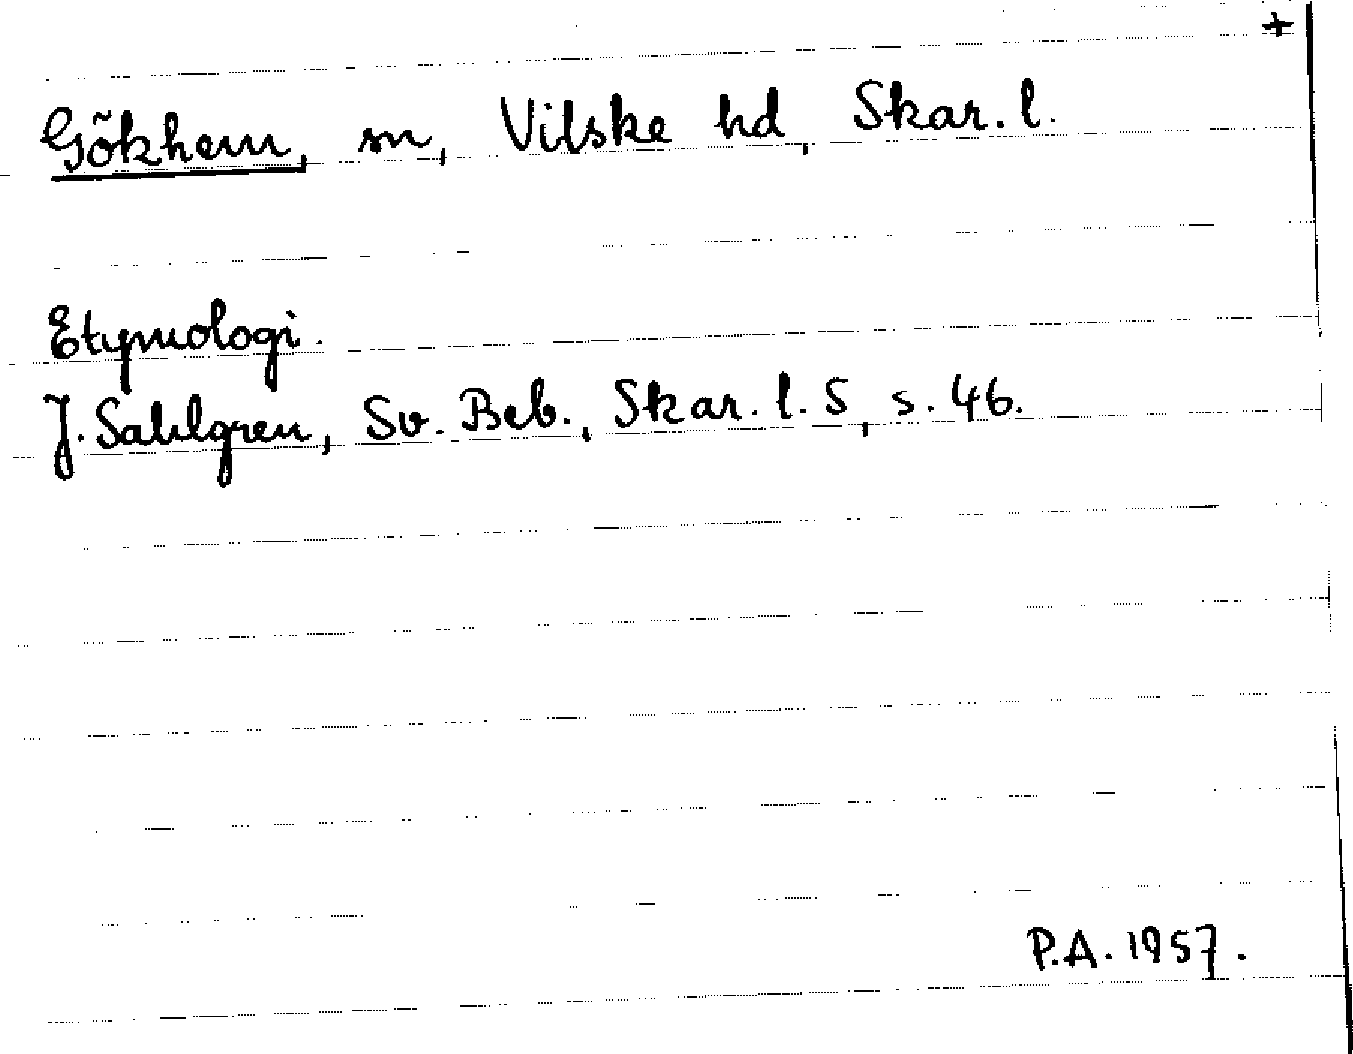 +
Gökhem, sn, Vilske hd, Skar. l.
Etymologi.
J. Sahlgren, Sv. Beb., Skar. l. S, s. 46.
P.A. 1957.